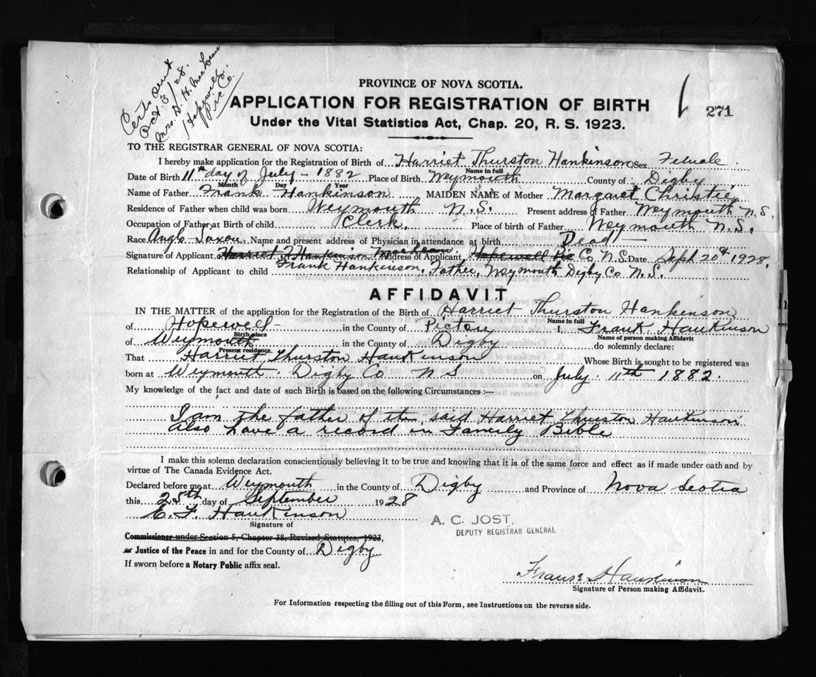 Cert. sent
Oct 3/28.
Mrs. D. H.
Hopewell
Pic Co.
PROVINCE OF NOVA SCOTIA.
APPLICATION FOR REGISTRATION OF BIRTH
271
Under the Vital Statistics Act, Chap. 20, R. S. 1923.
TO THE REGISTRAR GENERAL OF NOVA SCOTIA:
I hereby make application for the Registration of Birth of Harriet Thurston Hankinson Sex Female
Name in full
Date of Birth 11th day of July - 1882 Place of Birth Weymouth County of Digby
Month Day Year
Name of Father Frank Hankinson MAIDEN NAME of Mother Margaret Christie
Residence of Father when child was born Weymouth N.S. Present address of Father Weymouth N.S.
Occupation of Father at Birth of child Clerk. Place of birth of Father Weymouth N.S.
Race Anglo Saxon Name and present address of Physician in attendance at birth Dead
Signature of Applicant Harriet T Hankinson Address of Applicant Hopewell Pic Co. N.S. Date Sept 20th 1928.
Relationship of Applicant to child Frank Hankinson, Father, Weymouth Digby Co. N.S.
AFFIDAVIT
IN THE MATTER of the application for the Registration of the Birth of Harriet Thurston Hankinson
Name in full
of Hopewell in the County of Pictou I, Frank Hankinson
Birth place
Name of person making Affidavit
of Weymouth in the County of Digby do solemnly declare:
Present residence
That Harriet Thurston Hankinson Whose Birth is sought to be registered was
born at Weymouth Digby Co N S on July 11th 1882.
My knowledge of the fact and date of such Birth is based on the following Circumstances :—
I am the father of the said Harriet Thurston Hankinson
also have a record in Family Bible
I make this solemn declaration conscientiously believing it to be true and knowing that it is of the same force and effect as if made under oath and by
virtue of The Canada Evidence Act.
Declared before me at Weymouth in the County of Digby and Province of Nova Scotia
this 25th day of September 1928
E. F. Hankinson
Signature of
A. C. JOST,
DEPUTY REGISTRAR GENERAL
Commissioner under Section 5, Chapter 38, Revised Statutes, 1923,
or Justice of the Peace in and for the County of Digby
If sworn before a Notary Public affix seal.
Hankinson
Signature of Person making Affidavit.
For Information respecting the filling out of this Form, see Instructions on the reverse side.